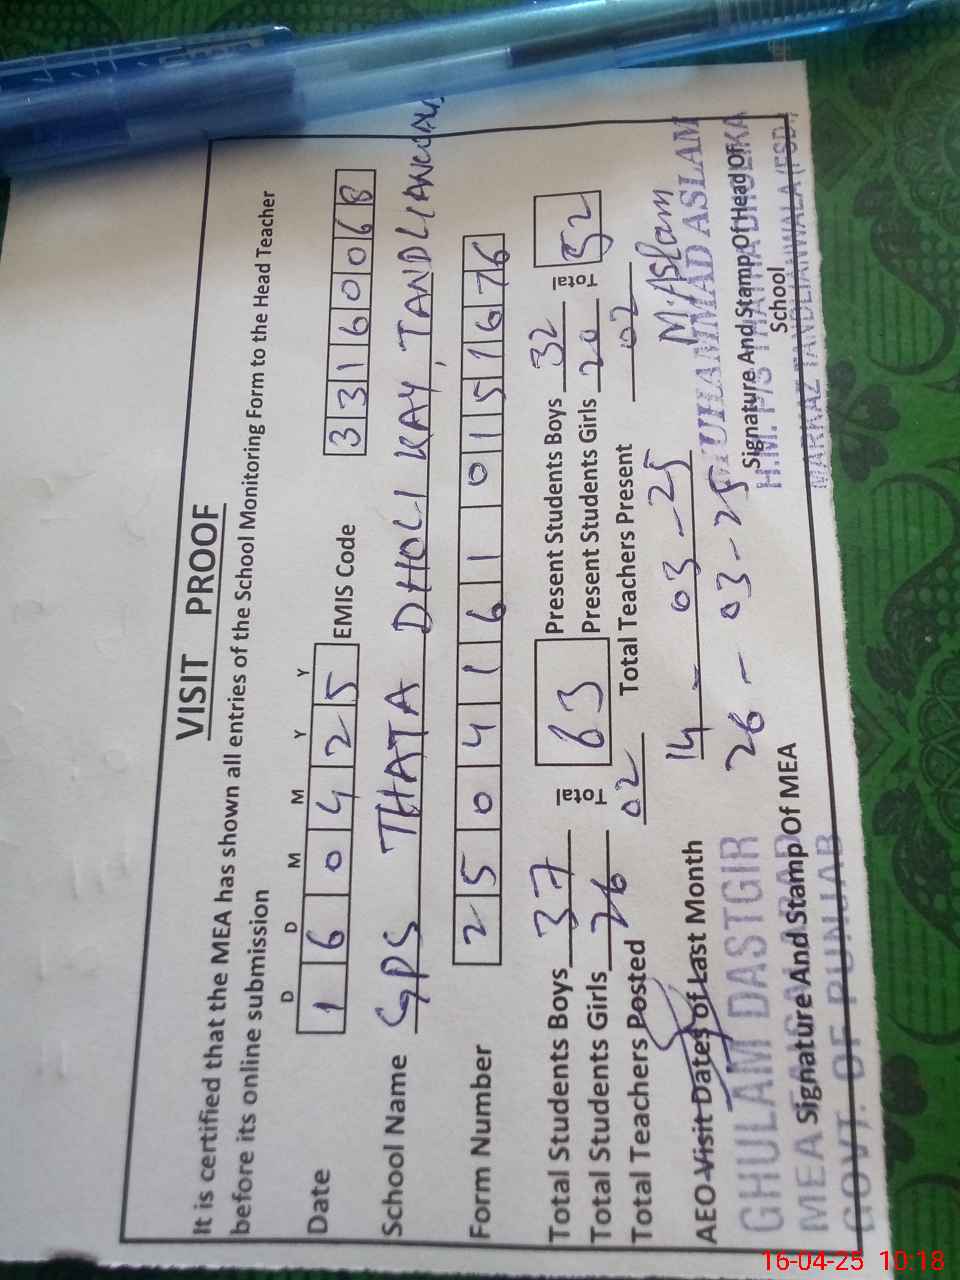 VISIT PROOF
It is certified that the MEA has shown all entries of the School Monitoring Form to the Head Teacher
before its online submission
D D M M Y Y
Date 1 6 0 4 2 5 EMIS Code 3 3 1 6 0 0 6 8
School Name GPS THATA DHOLI KAY, TANDLIANWALA
Form Number 2 5 0 4 1 6 1 0 1 5 1 6 7 6
Total Students Boys 37 Total 63 Present Students Boys 32 Total 52
Total Students Girls 26 Present Students Girls 20
Total Teachers Posted 02 Total Teachers Present 02
AEO Visit Dates of Last Month 14 - 03 - 25 M. Aslam
26 - 03 - 25
GHULAM DASTGIR MUHAMMAD ASLAM
Signature And Stamp Of MEA Signature And Stamp Of Head Of
School
MEA
GOVT. OF PUNJAB
H.M. P/S THATHA DHOLIKA
MARKAZ TANDLIANWALA (FSD)
16-04-25 10:18